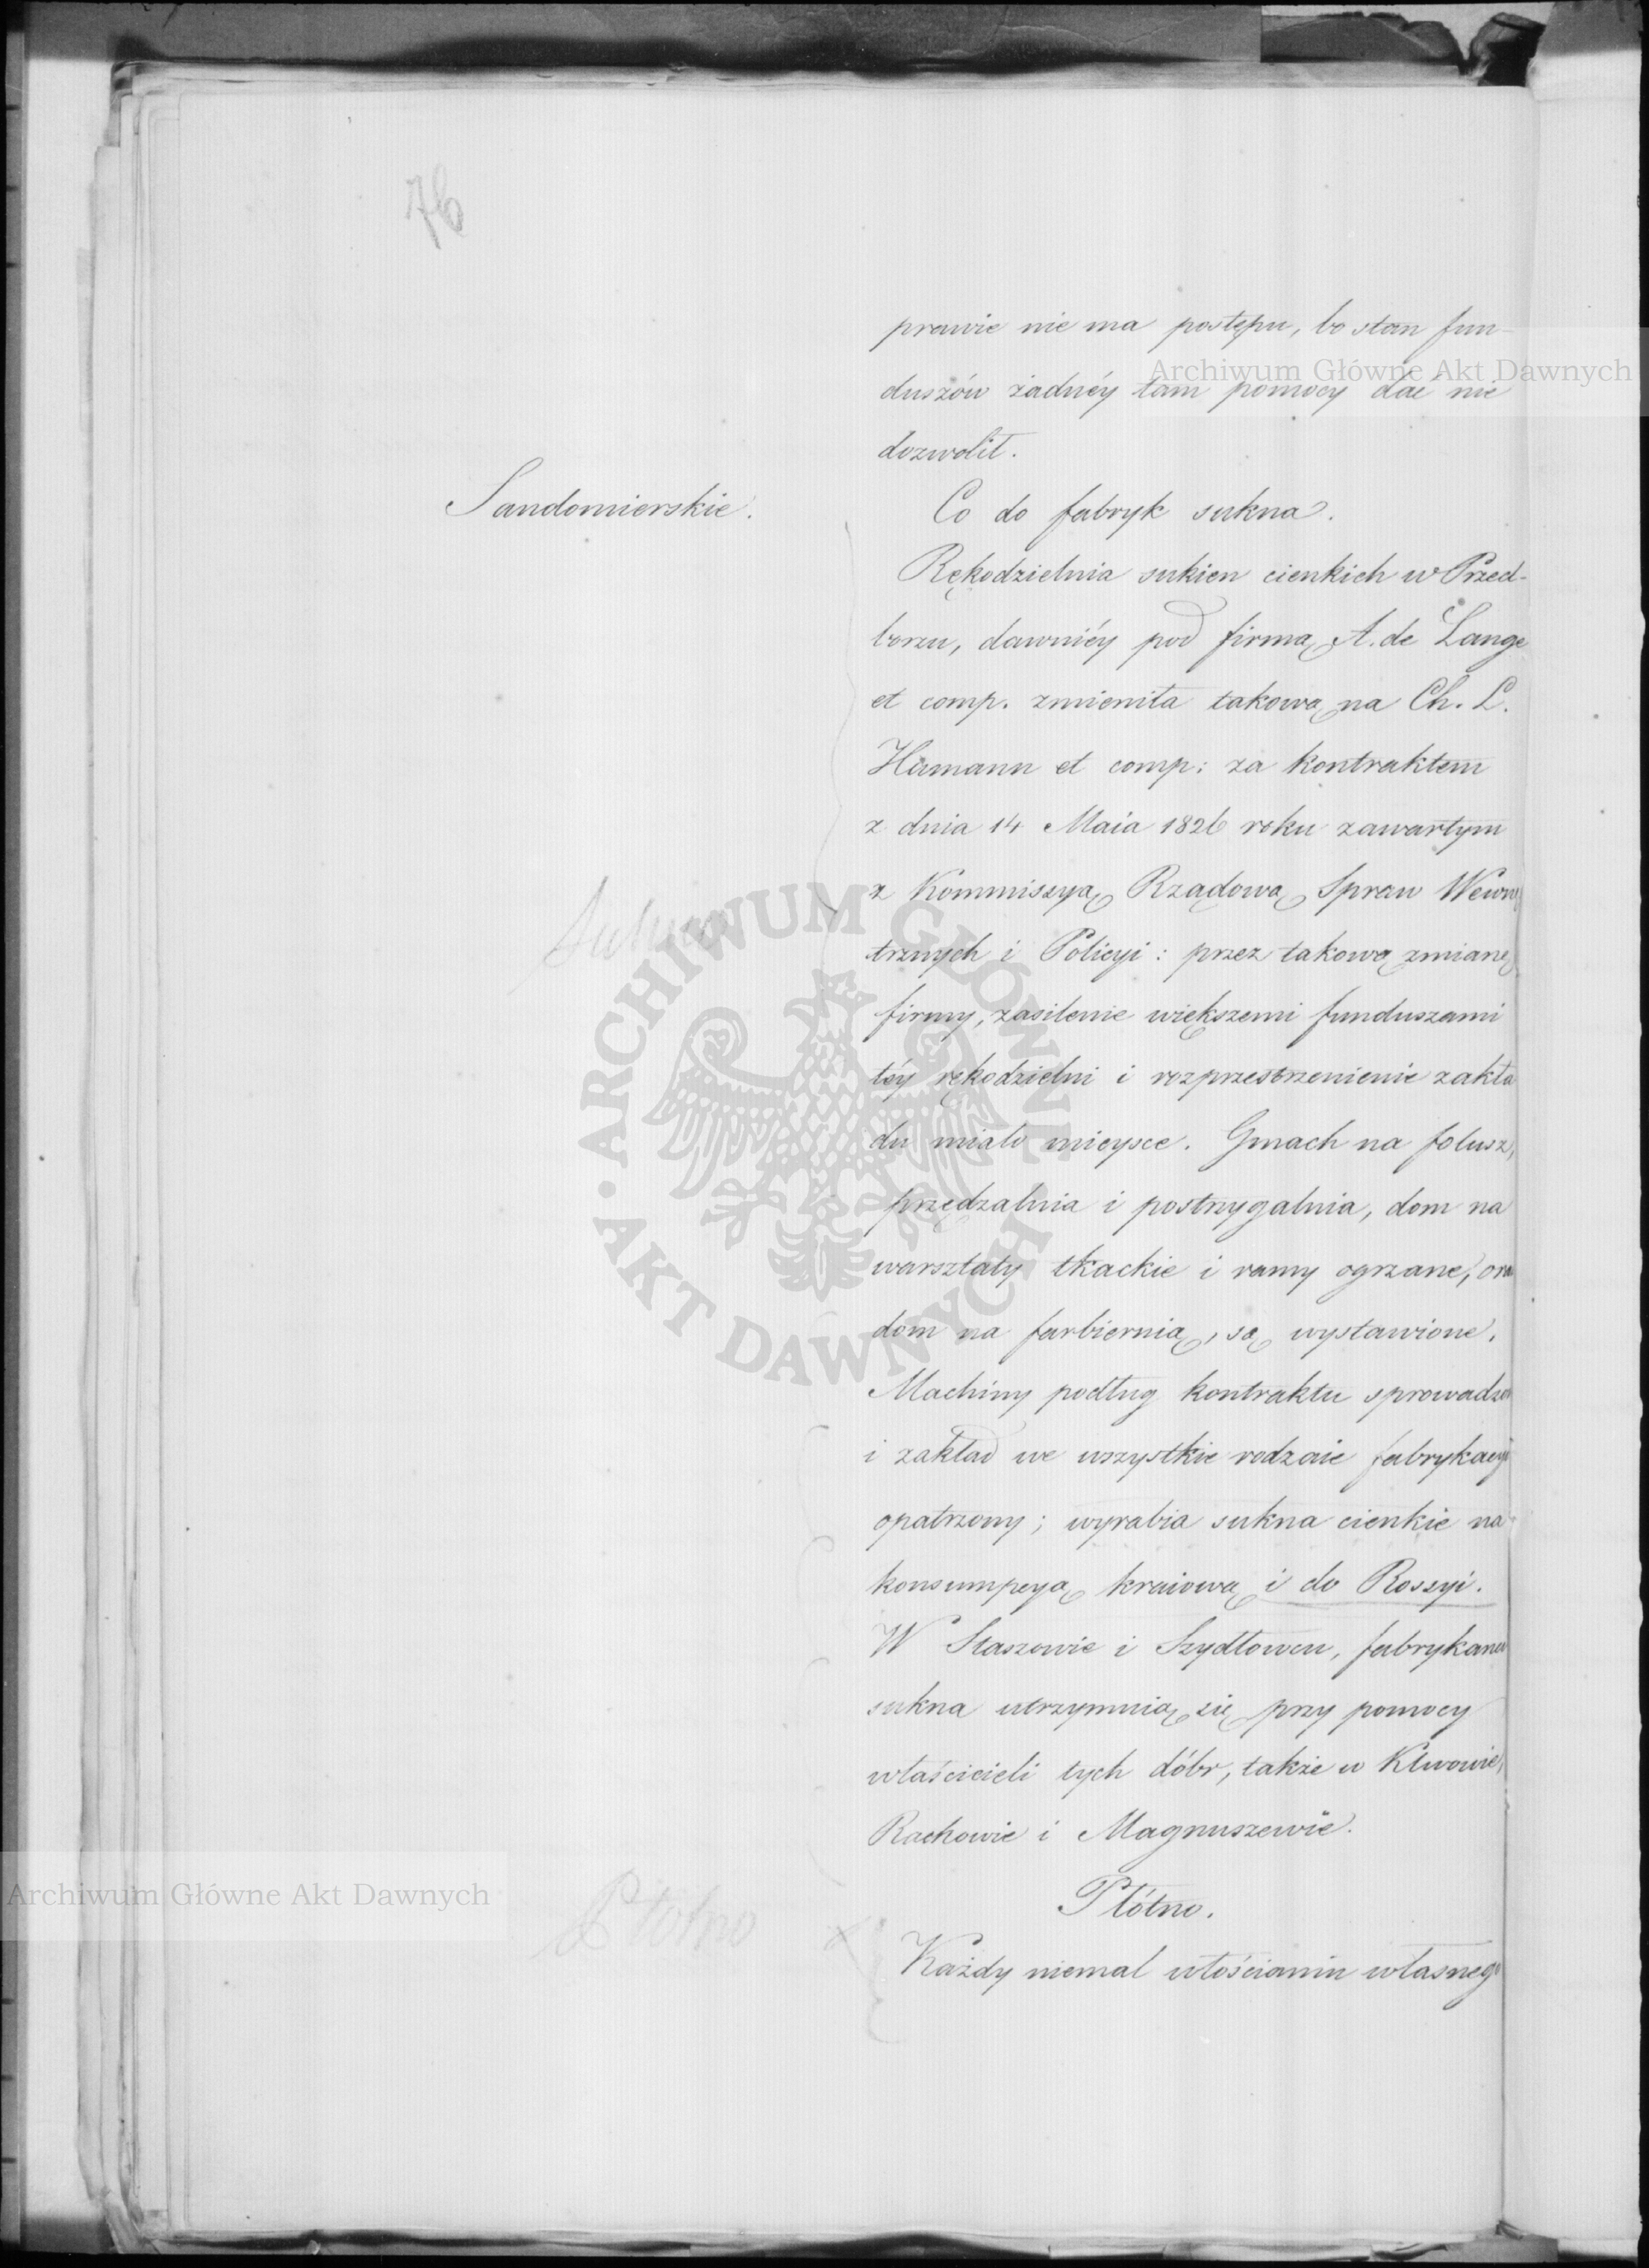 76
prawie nie ma postępu, bo stan fun-
Archiwum Główne Akt Dawnych
duszów żadnéy tam pomocy dać nie
dozwolił.
Sandomierskie.
Co do fabryk sukna.
Rękodzielnia sukien cienkich w Przed-
borzu, dawniéy pod firmą A. de Lange
et comp. zmieniła takową na Ch. L.
Hamann et comp: za kontraktem
z dnia 14 Maia 1826 roku zawartym
Sukno
z Kommissyą Rządową Spraw Wewn
trznych i Policyi: przez takową zmianę
firmy, zasilenie większemi funduszami
téy rękodzielni i rozprzestrzenienie zakła
du miało mieysce. Gmach na folusz,
przędzalnia i postrzygalnia, dom na
warsztaty tkackie i ramy ogrzane, ora
dom na farbiernią, są wystawione.
Machiny podług kontraktu sprowadzo
i zakład we wszystkie rodzaie fabrykacyi
opatrzony; wyrabia sukna cienkie na
konsumpcyą kraiową i do Rossyi.
W Staszowie i Szydłowcu, fabrykanci
sukna utrzymuią się przy pomocy
właścicieli tych dóbr, także w Klwowie,
Rachowie i Magnuszewie.
Archiwum Główne Akt Dawnych
Płótno
Płótno.
Każdy niemal włościanin własnego
ARCHIWUM GŁÓWNE • AKT DAWNYCH •